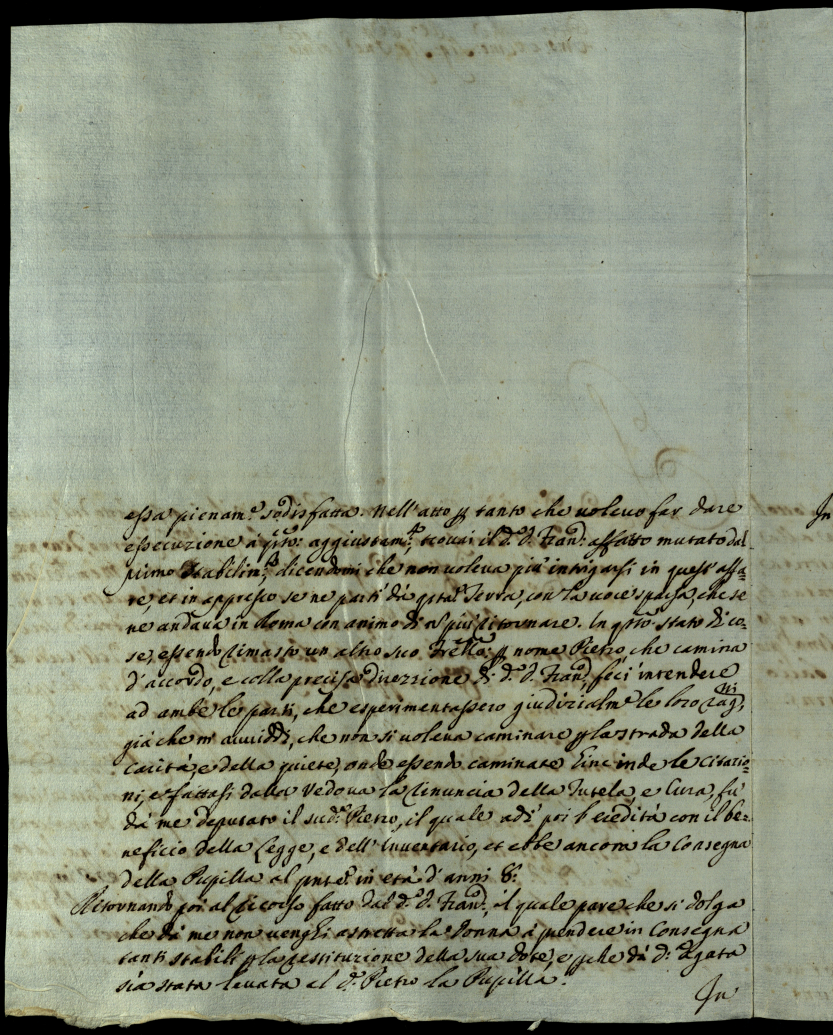 essa pienam:e sodisfatta. Nell'atto p tanto che volevo far dare
essecuzione à q̃sto: aggiustam:to, trovai il d:o d: Fran:o affatto mutato dal
primo stabilim:to, dicendomi che non voleva più intrigarsi in quest'affa=
re, et in appresso se ne partì dà q̃sta Terra, con la voce sparsa, che se
ne andava in Roma con animo di ñ più ritornare. In q̃sto stato di co=
se, essendo rimasto un altro suo Frẽllo: p nome Pietro, che camina
d'accordo, e colla precisa direzzione di d:o d: Fran:o, feci intendere
ad ambe le parti, che esperimentassero giudizialm:e le loro rag:ni,
già che m'avviddi, che non si voleva caminare p la strada della
carità, e della quiete, onde essendo caminate hinc inde le citazio=
ni, e fattasi dalla Vedova la rinuncia della Tutela, e Cura, fù
dà me deputato il sud:o Pietro, il quale adì poi l'eredità con il be=
neficio della Legge, e dell'Inventario, et ebbe ancora la consegna
della Pupilla al p̃nte in età d'anni 8:
Ritornando poi al ricorso fatto dal d:o d: Fran:o, il quale pare che si dolga
che dà me non venghi astretta la Donna à prendere in consegna
tanti stabili p la restituzione della sua dote, e p che dà d:a Agata
sia stata levata al d:o Pietro la Pupilla.
In
In